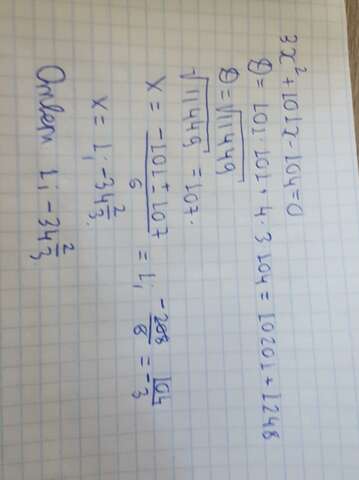 3x²+101x-104=0
D=101·101+4·3·104=10201+1248
D=√11449
√11449=107.
x=(-101±107)/6=1; -208/6=-104/3
x=1; -34 2/3.
Ответ 1; -34 2/3